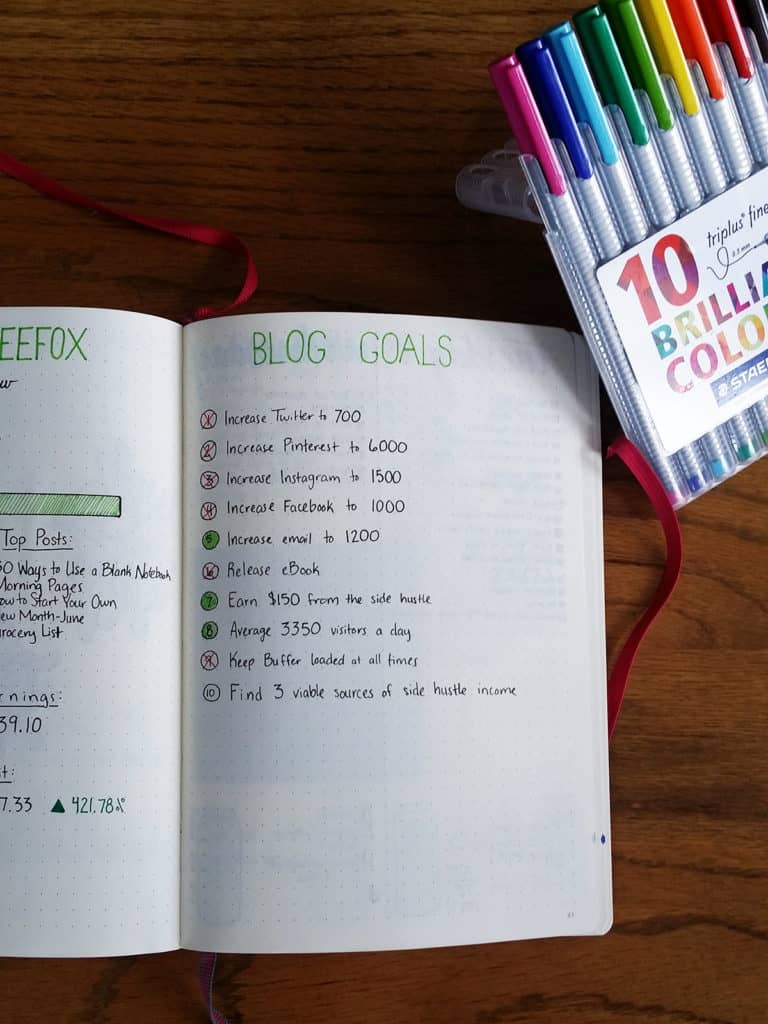 EEFOX
Top Posts:
50 Ways to Use a Blank Notebook
Morning Pages
How to Start Your Own
New Month-June
Grocery List
nings:
39.10
t:
7.33 ▲ 421.78%
BLOG GOALS
1 Increase Twitter to 700
2 Increase Pinterest to 6000
3 Increase Instagram to 1500
4 Increase Facebook to 1000
5 Increase email to 1200
6 Release eBook
7 Earn $150 from the side hustle
8 Average 3350 visitors a day
9 Keep Buffer loaded at all times
10 Find 3 viable sources of side hustle income
triplus® fine
0.3 mm
10
BRILLIA
COLO
STAE